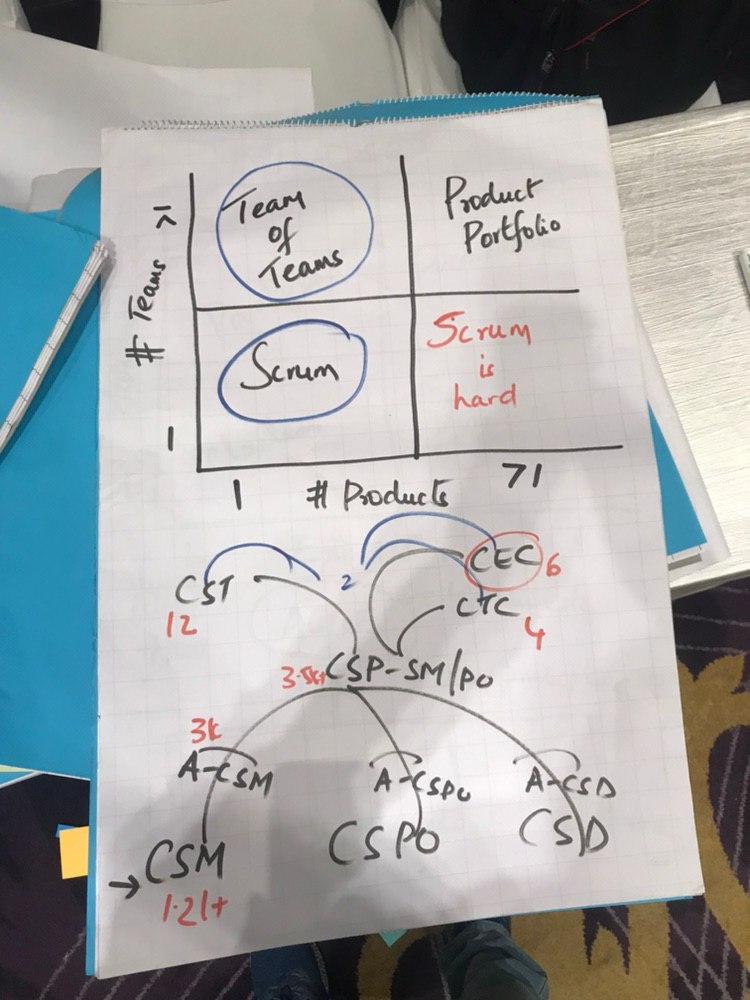 >1
Team
of
Teams
Product
Portfolio
# Teams
Scrum
Scrum
is
hard
1
1
# Products
>1
CST
12
2
CEC 6
CTC
4
CSP-SM/PO
3k
A-CSM
A-CSPO
A-CSD
CSM
CSPO
CSD